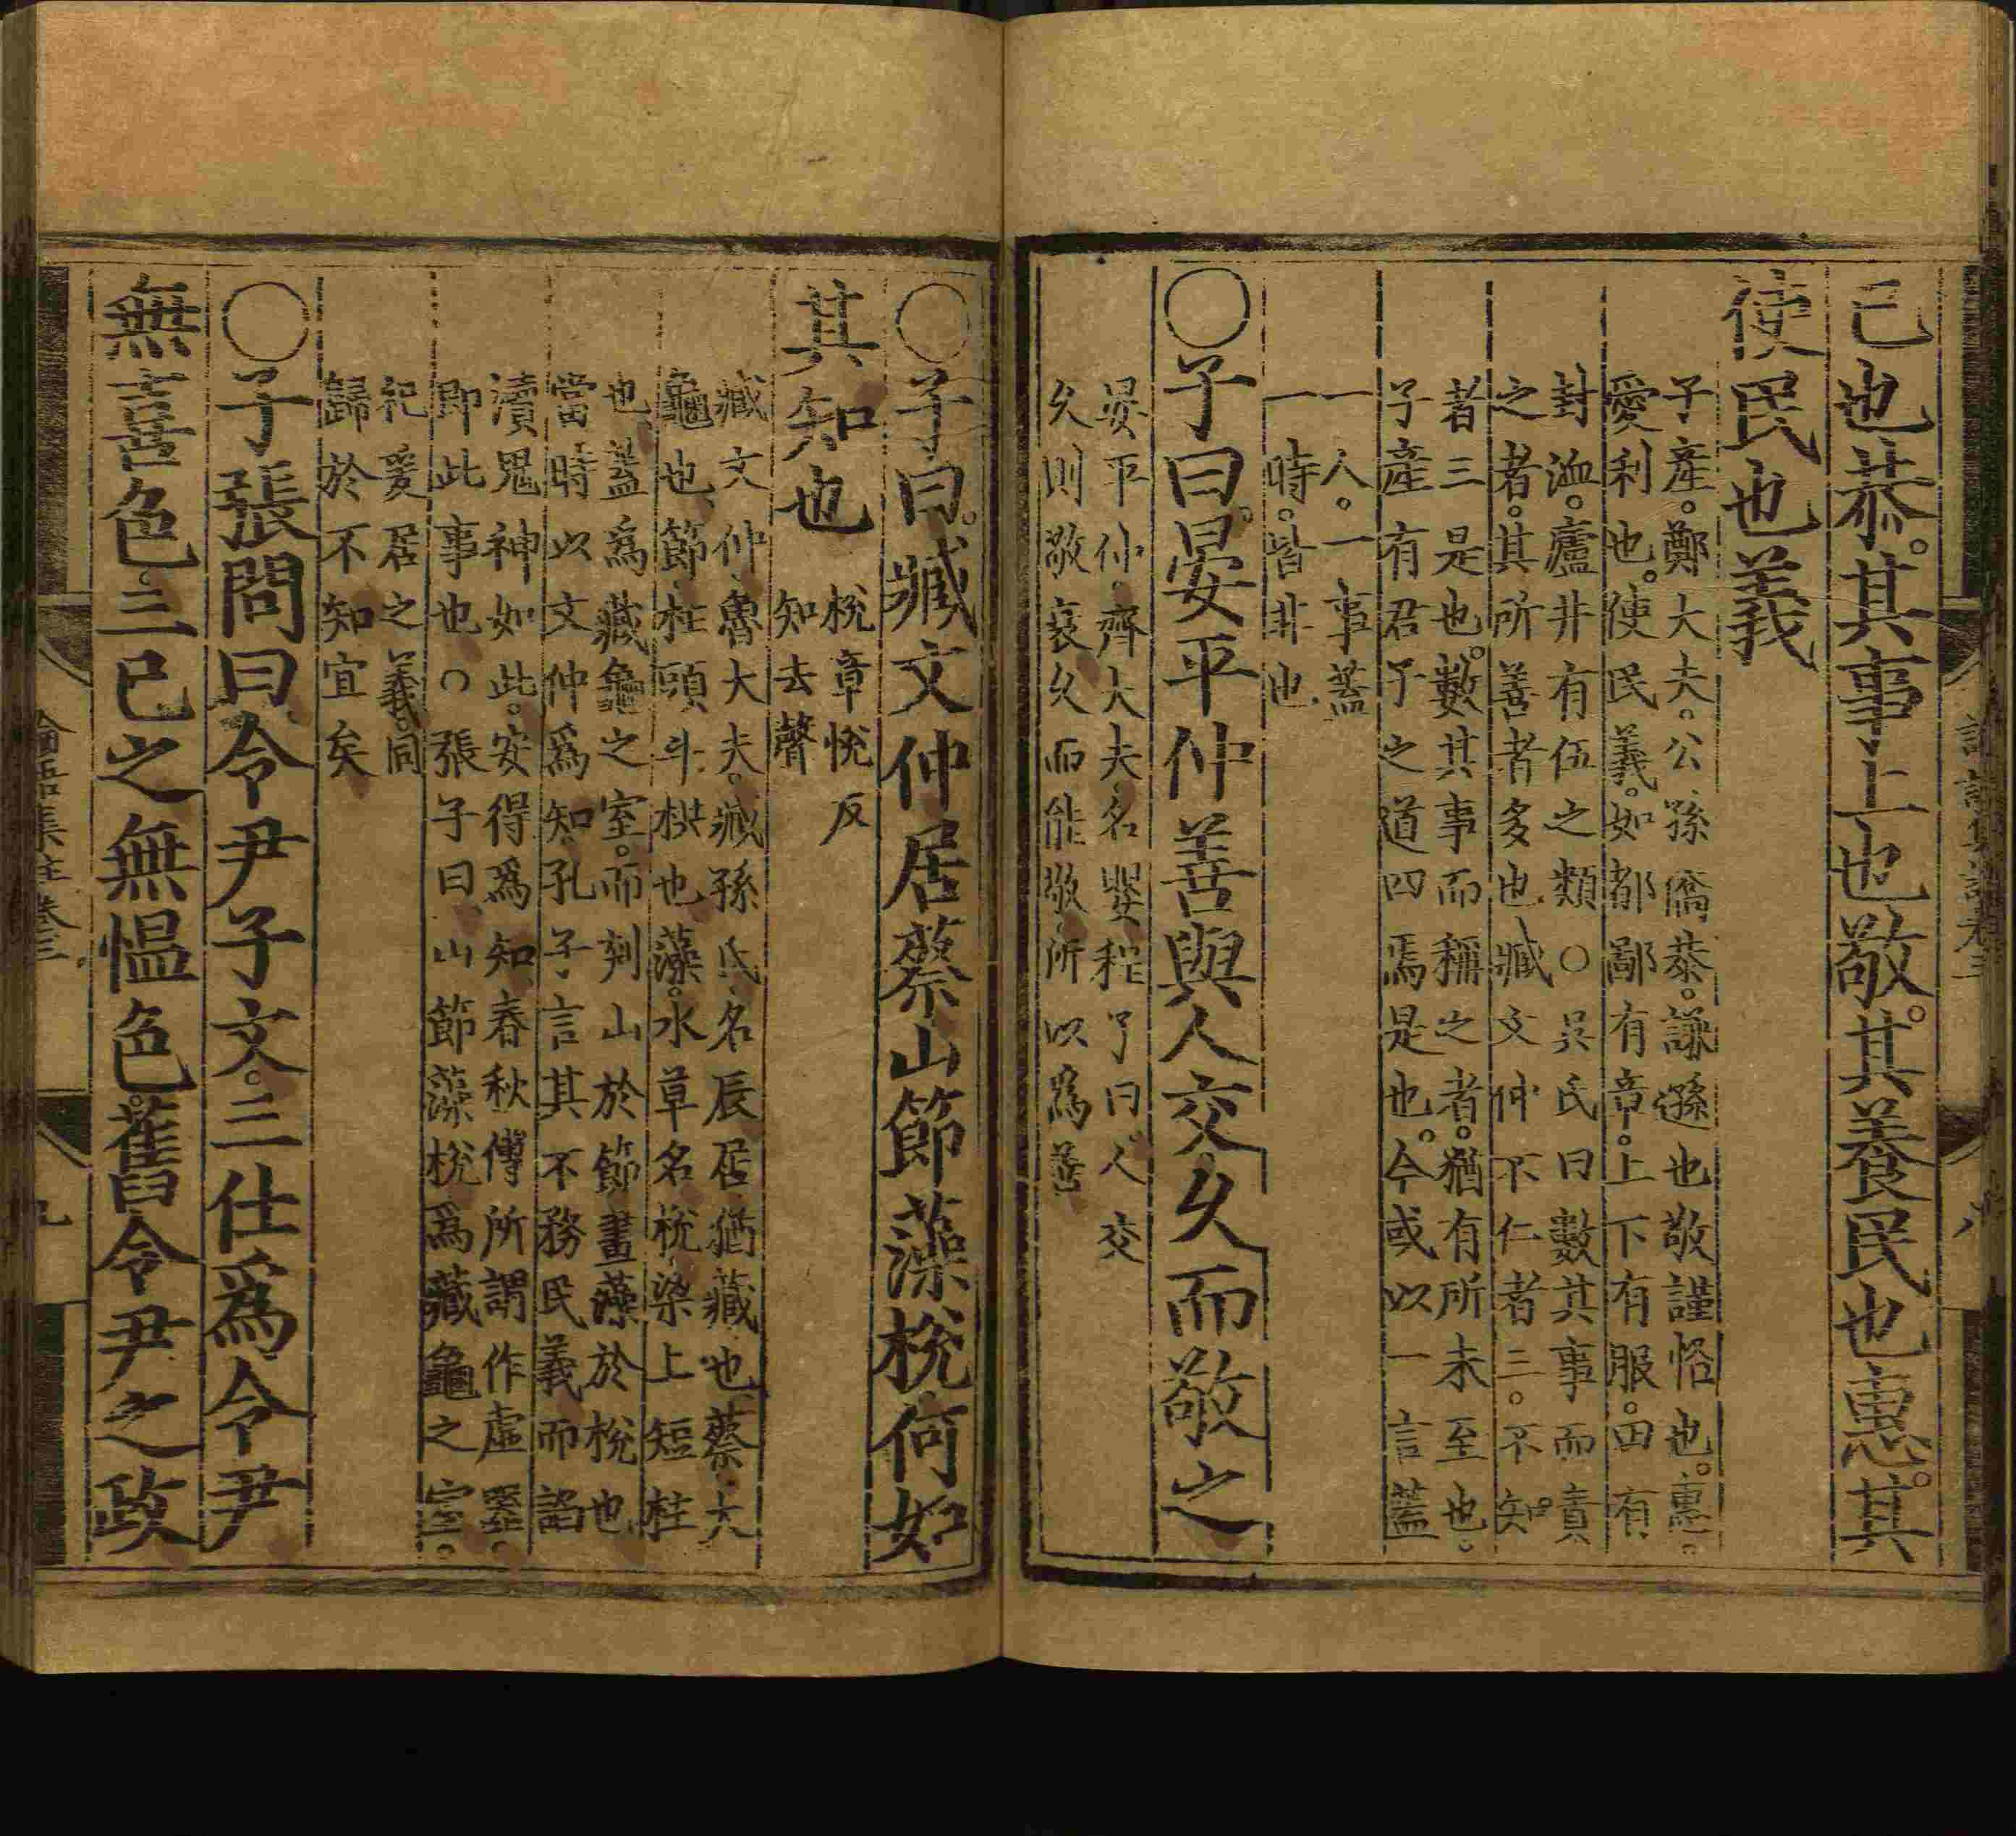 己也恭。其事上也敬。其養民也惠。其
使民也義
子產。鄭大夫。公孫僑恭。謙遜也敬謹恪也。惠。
愛利也。使民義。如都鄙有章。上下有服。田有
封洫。廬井有伍之類〇吳氏曰數其事而責
之者。其所善者多也臧文仲不仁者三。不知
者三是也。數其事而稱之者。猶有所未至也。
子產有君子之道四焉是也。今或以一言蓋
一人。一事蓋
一時。皆非也
〇子曰。晏平仲善與人交久而敬之
晏平仲。齊大夫名嬰程子曰。人交
久則敬衰久而能敬所以為善
〇子曰。臧文仲居蔡山節藻梲何如
其知也
梲章悅反
知去聲
臧文仲魯大夫。臧孫氏名辰居猶藏也蔡大
龜也節柱頭斗栱也藻。水草名梲梁上短柱
也蓋為藏龜之室。而刻山於節畫藻於梲也
當時以文仲為知孔子言其不務民義而諂
瀆鬼神如此。安得為知春秋傳所謂作虛器。
即此事也〇張子曰山節藻梲為藏龜之室。
祀爰居之義。同
歸於不知宜矣
〇子張問曰令尹子文。三仕爲令尹
無喜色。三已之無慍色。舊令尹之政
論語集註卷三
九